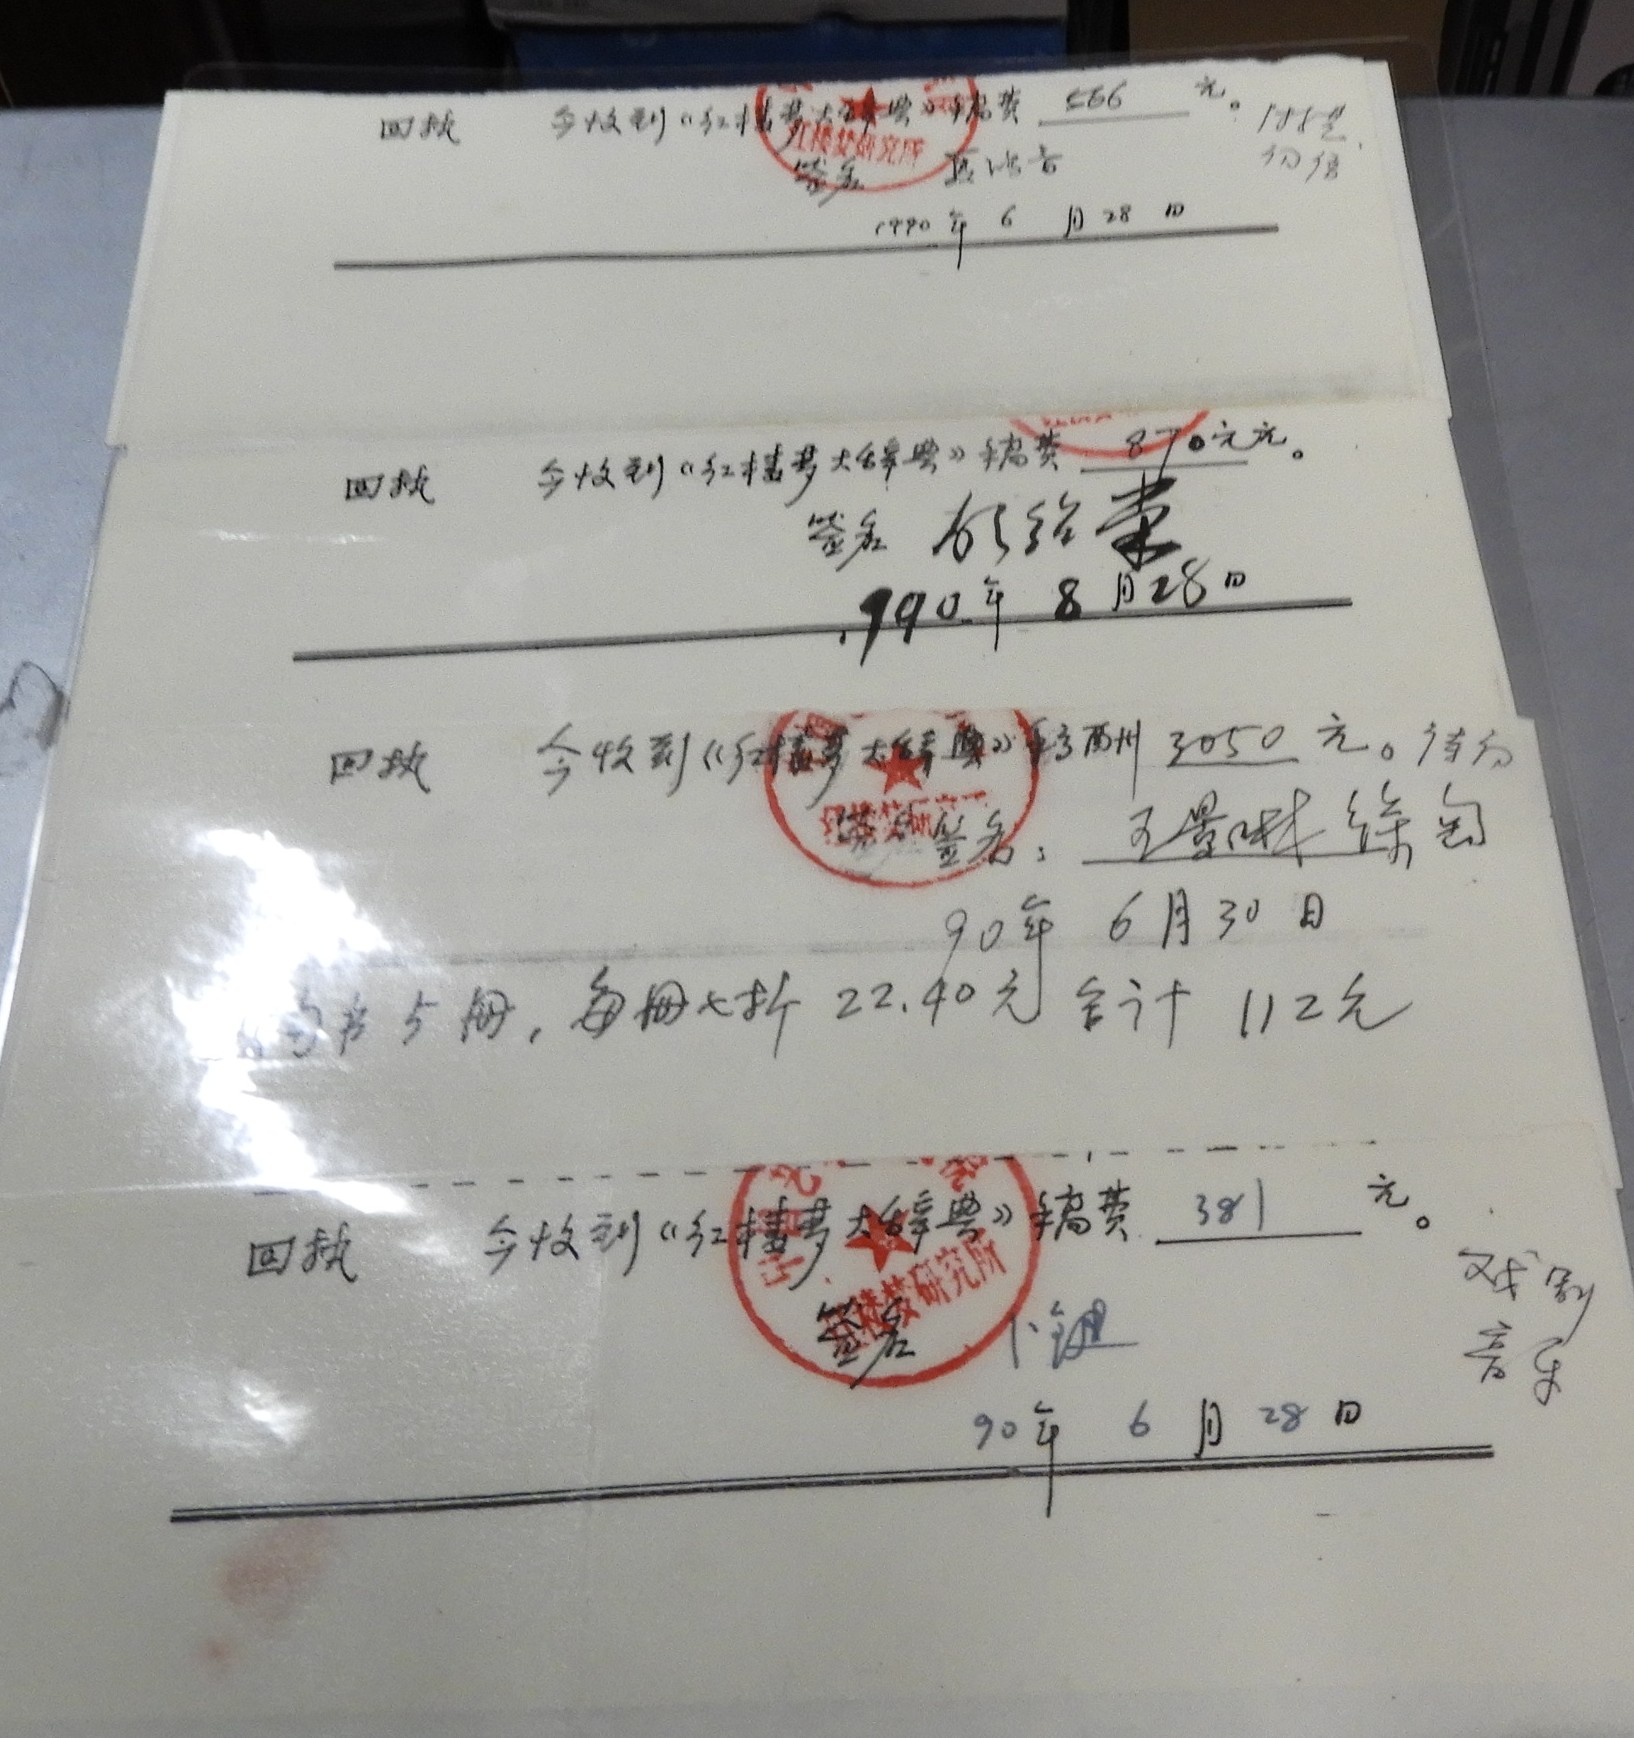 回执 今收到《红楼梦大辞典》稿费 566 元。
红楼梦研究所
签名
1990年 6 月 28 日
回执 今收到《红楼梦大辞典》稿费 870元元。
签名 胡绍棠
1990年 8 月 28 日
回执 今收到《红楼梦大辞典》稿酬 3050 元。待分
红楼梦研究所
签名: 王景琳 徐匋
90年 6月30日
书5册,每册七折 22.40元 合计 112元
回执 今收到《红楼梦大辞典》稿费 381 元。
红楼梦研究所
戏剧
音乐
签名 卜键
90年 6 月 28 日